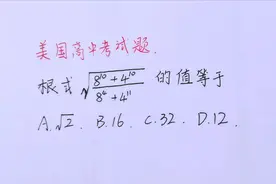 美国高中考试题.
根式 √(8^10+4^10)/(8^4+4^11) 的值等于
A.√2. B.16. C.32. D.12.